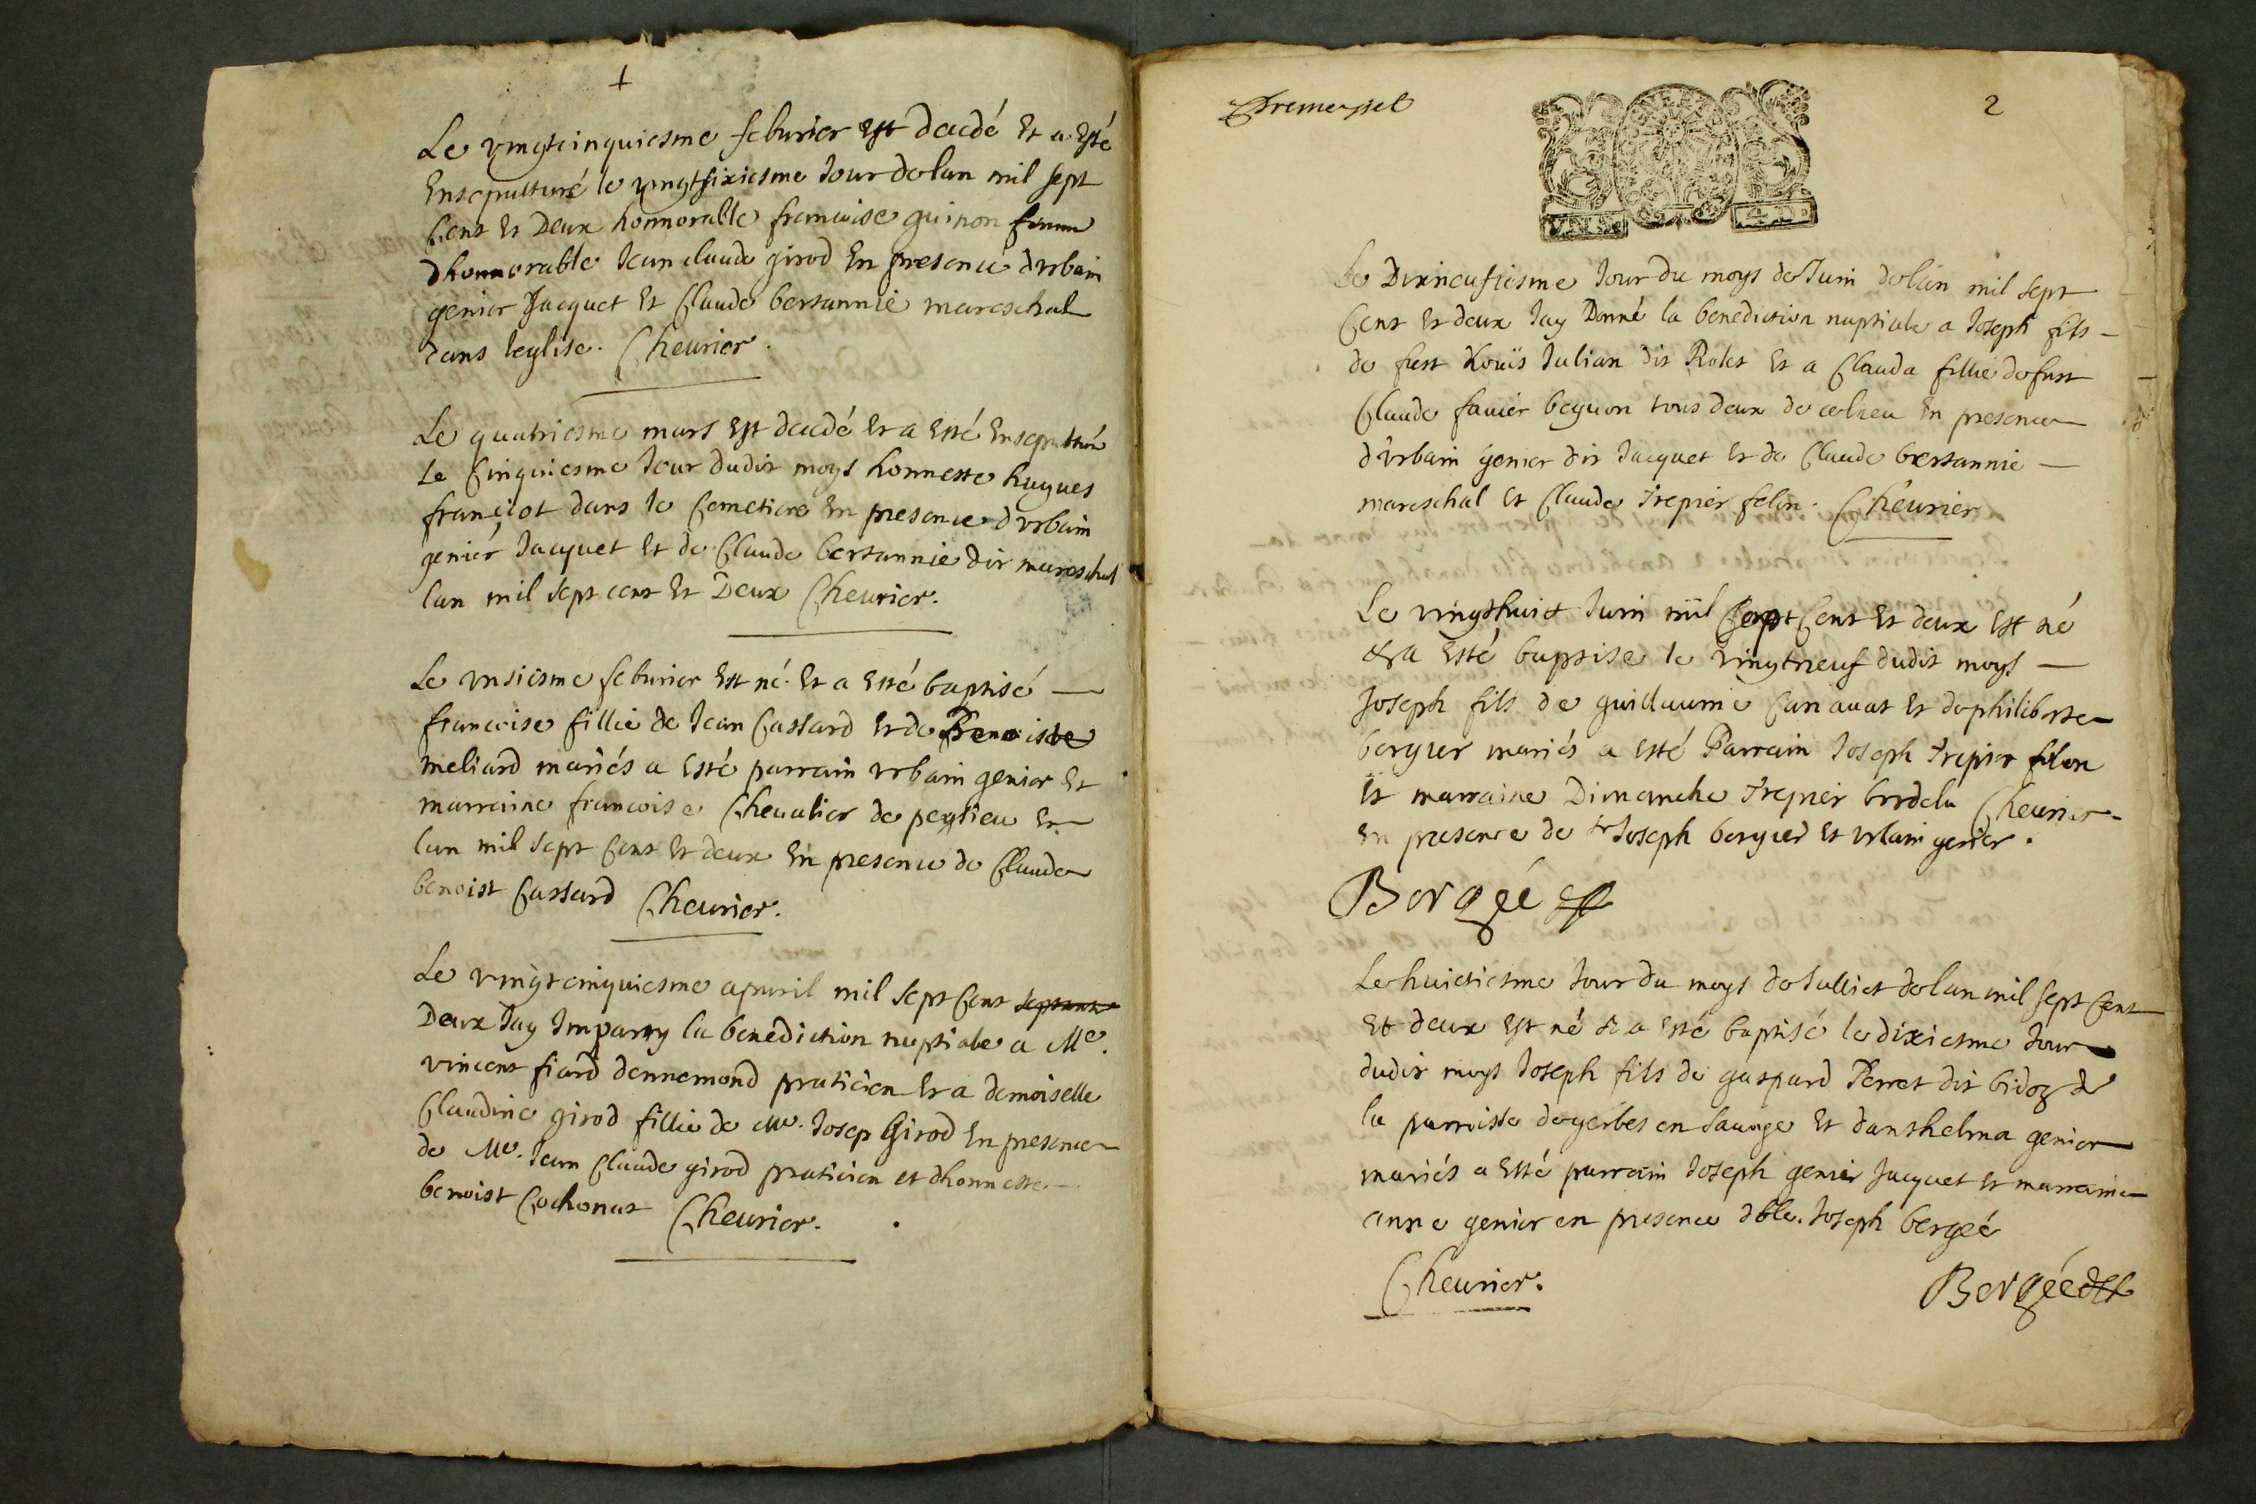 Le vingtcinquiesme feburier est decedé et a esté
Ensepulturé le vingtsixiesme Jour de lan mil sept
Cent et Deux honnorable francoise guinon femme
dhonnorable Jean claude girod En presence d'vrbain
genier Jacquet et Claude bertannie mareschal
dans leglise. Cheurier.
Le quatriesme mars est decedé et a esté Ensepulturé
Le Cinquiesme Jour dudit moys honneste hugues
françiot dans le Cemetiere En presence d'vrbain
genier Jacquet et de Claude bertannie dit mareschal
lan mil sept cent et Deux Cheurier.
Le vnsiesme feburier est né et a esté baptisé
francoise fillie de Jean Cassard et de Benoiste
meliard mariés a esté parrain vrbain genier et
marraine francoise Cheualier de peyrieu
lan mil sept Cent et deux En presence de Claude
benoist Cassard Cheurier.
Le vingtcinquiesme apuril mil sept Cent septante
Deux Jay Imparty la benediction nuptiale a Me.
vincent fiard dennemond praticien et a demoiselle
Claudine girod fillie de Me. Josep Girod En presence
de Me. Jean Claude girod praticien et dhonneste
benoist Cochonat Cheurier.
2
Le Dixneufiesme Jour du moys de Juin de lan mil sept
Cent et deux Jay Donné la benediction nuptiale a Joseph fils
de fust Louis Julian dit Rolet et a Clauda fillie de fust
Claude fauier beguon tous deux de ce lieu En presence
d'vrbain genier dit Jacquet et de Claude bertannie
mareschal et Claude trepier felon. Cheurier
Le vingthuict Juin mil Sept Cent et deux est né
et a esté baptise le vingtneuf dudit moys
Joseph fils de guillaume Canauat et de philiberte
berguer mariés a esté Parrain Joseph trepier felon
et marraine Dimanche trepier Cheurier
en presence de Joseph berguer et vrbain genier.
Bergée
Le huictiesme Jour du moys de Julliet de lan mil sept Cent
Et deux est né et a esté baptisé le dixiesme Jour
dudit moys Joseph fils de gaspard Perret dit bidoz de
la parroisse de gerbes en Sauoye et danthelma genier
mariés a esté parrain Joseph genier Jacquet et marraine
anne genier en presence Joseph bergeé
Cheurier. Bergée